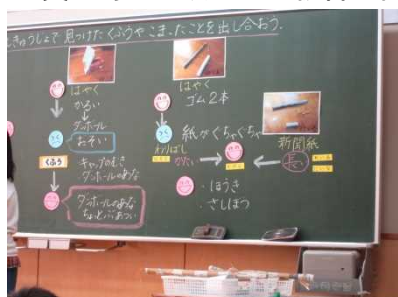 きゅうしょで見つけたくふうやこまったことを出し合おう。
はやく
かるい
ダンボール
おそい
くふう
キャップのむき
・ダンボールのあな
ダンボールのあな
ちょっとぶあつい
はやく
ゴム2本
紙がぐちゃぐちゃ
わりばし
かたい
新聞紙
長い
・ほうき
・さしぼつ